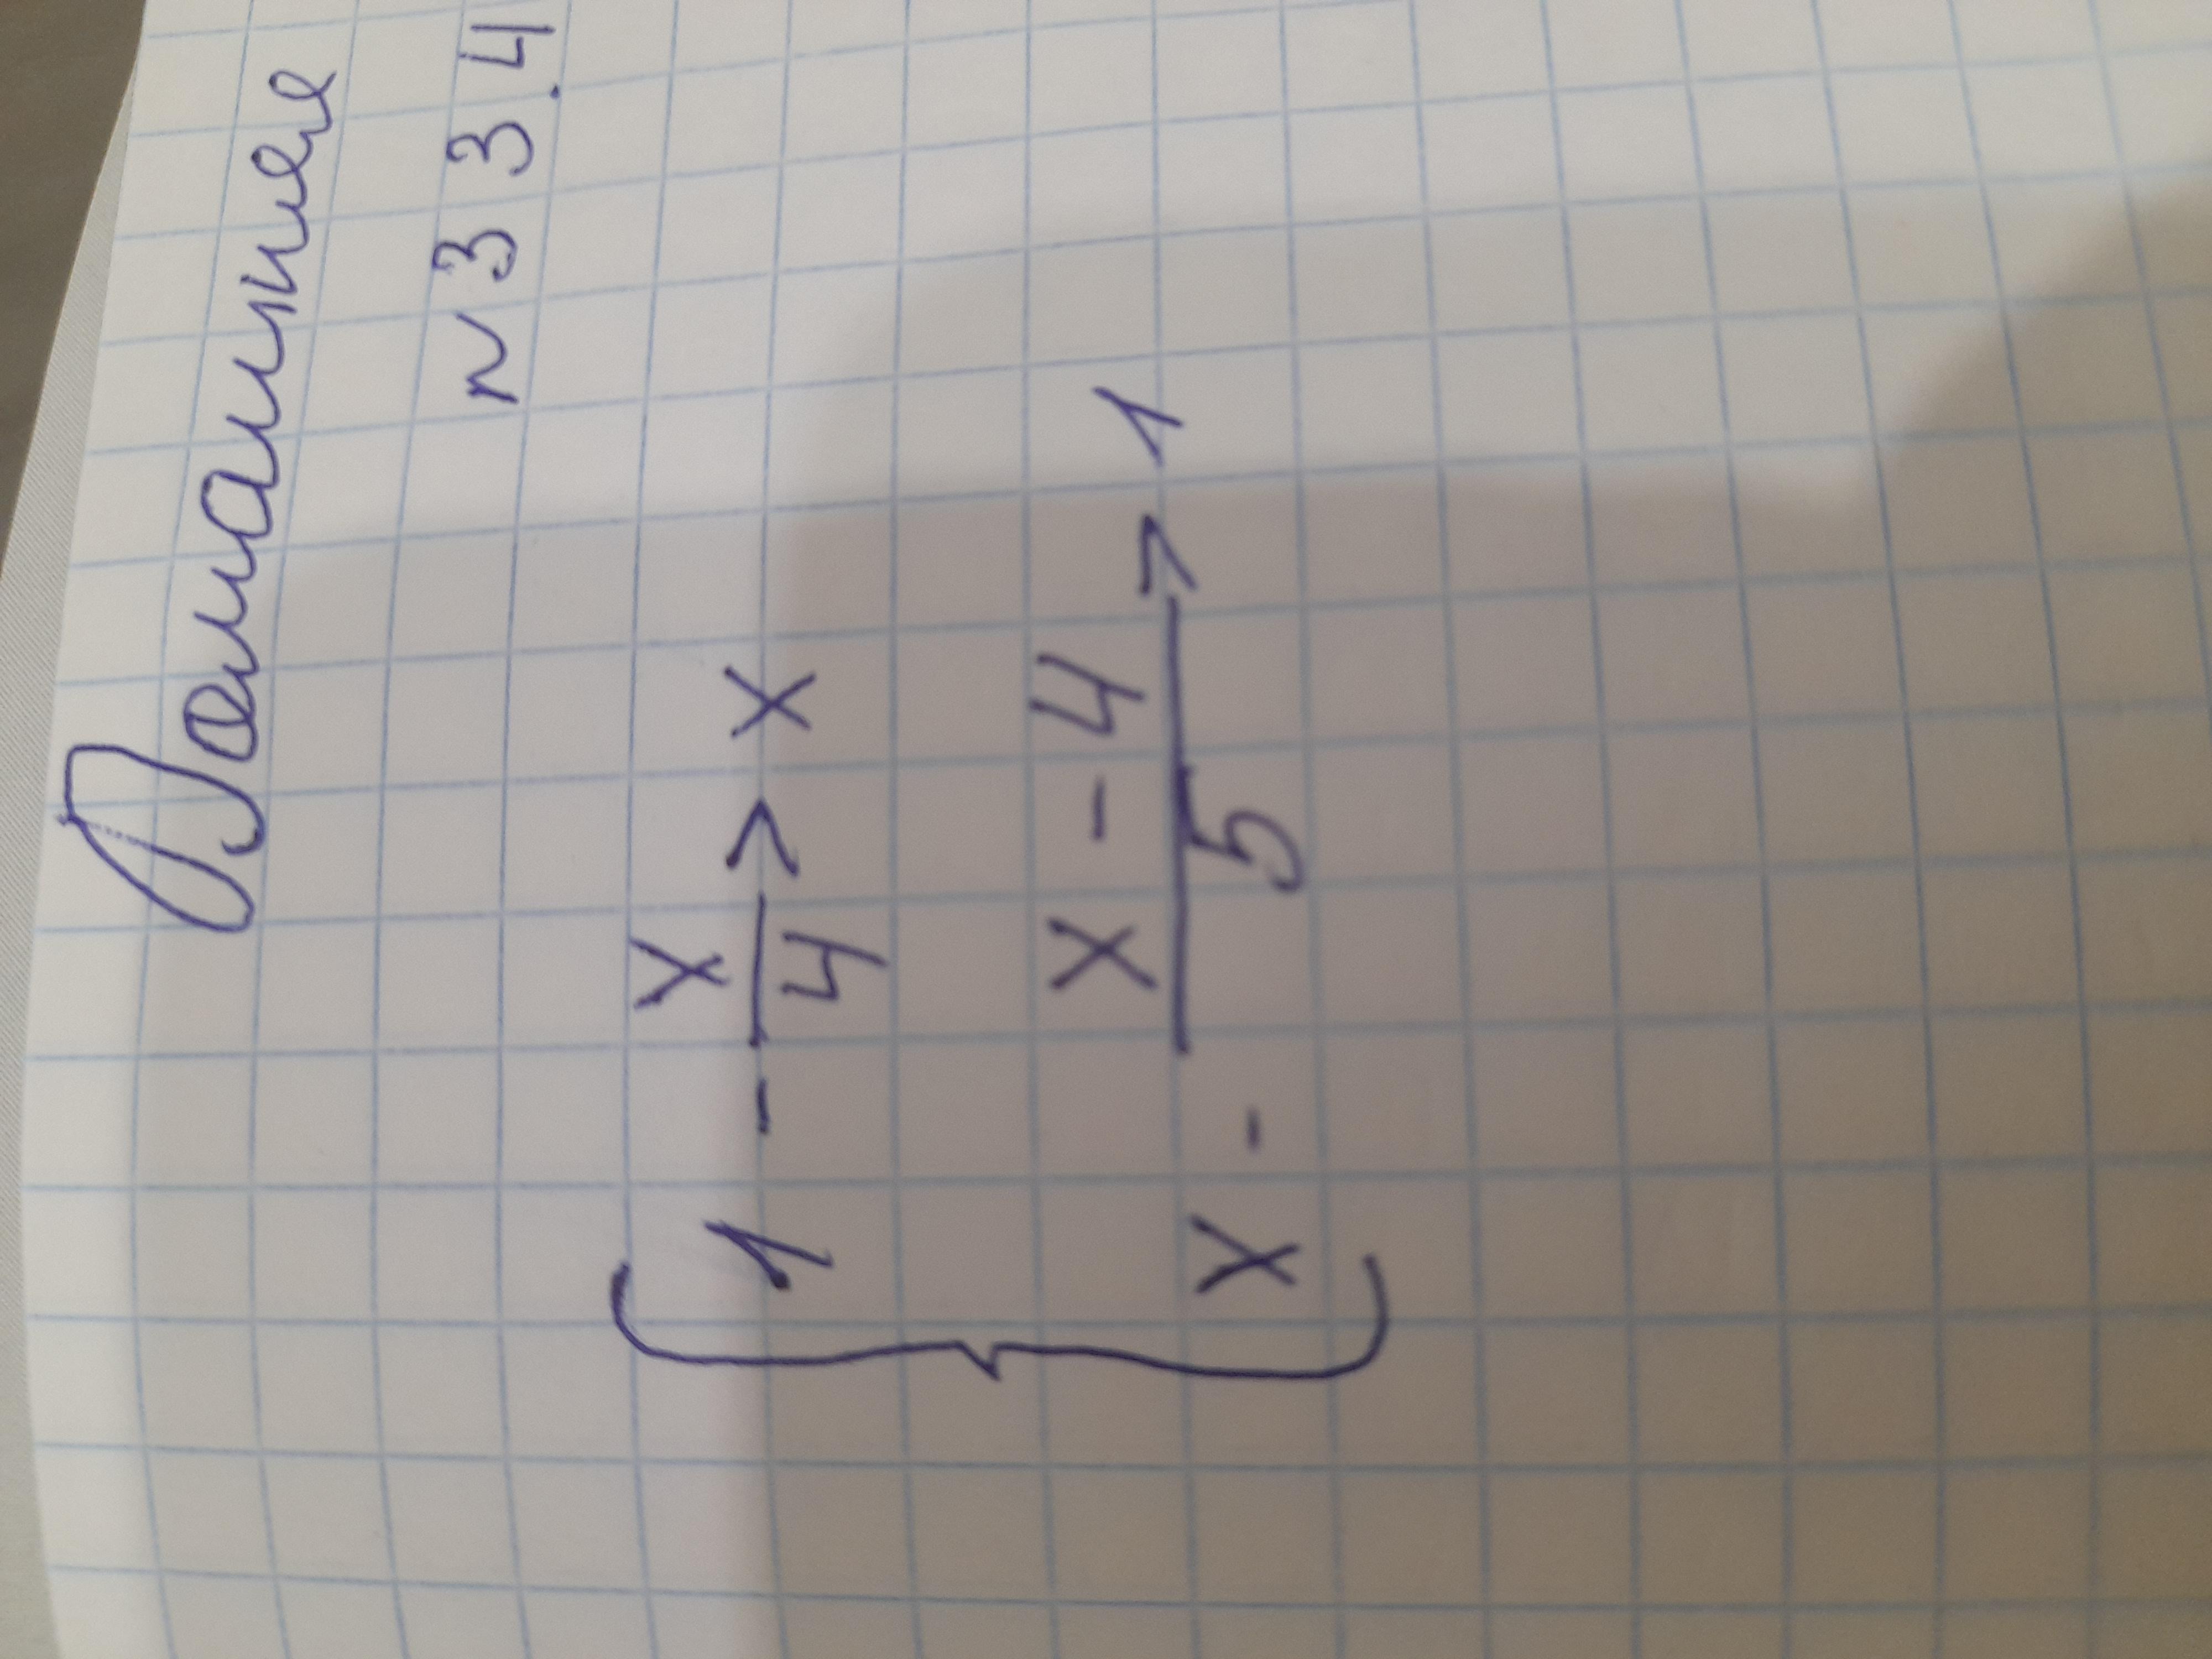 Домашнее
N 33.4
1 - x/4 > x
x - (x - 4)/5 > 1